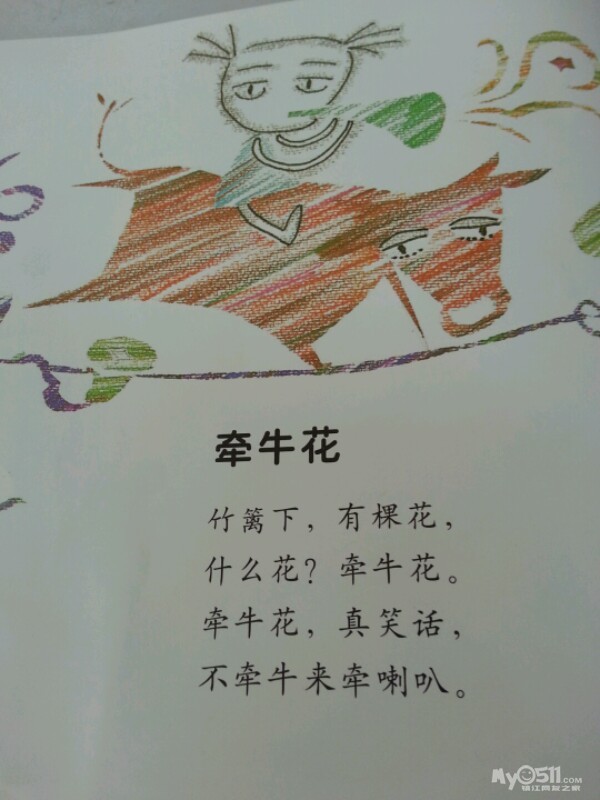 牵牛花
竹篱下，有棵花，
什么花？牵牛花。
牵牛花，真笑话，
不牵牛来牵喇叭。
My0511.COM
镇江网友之家